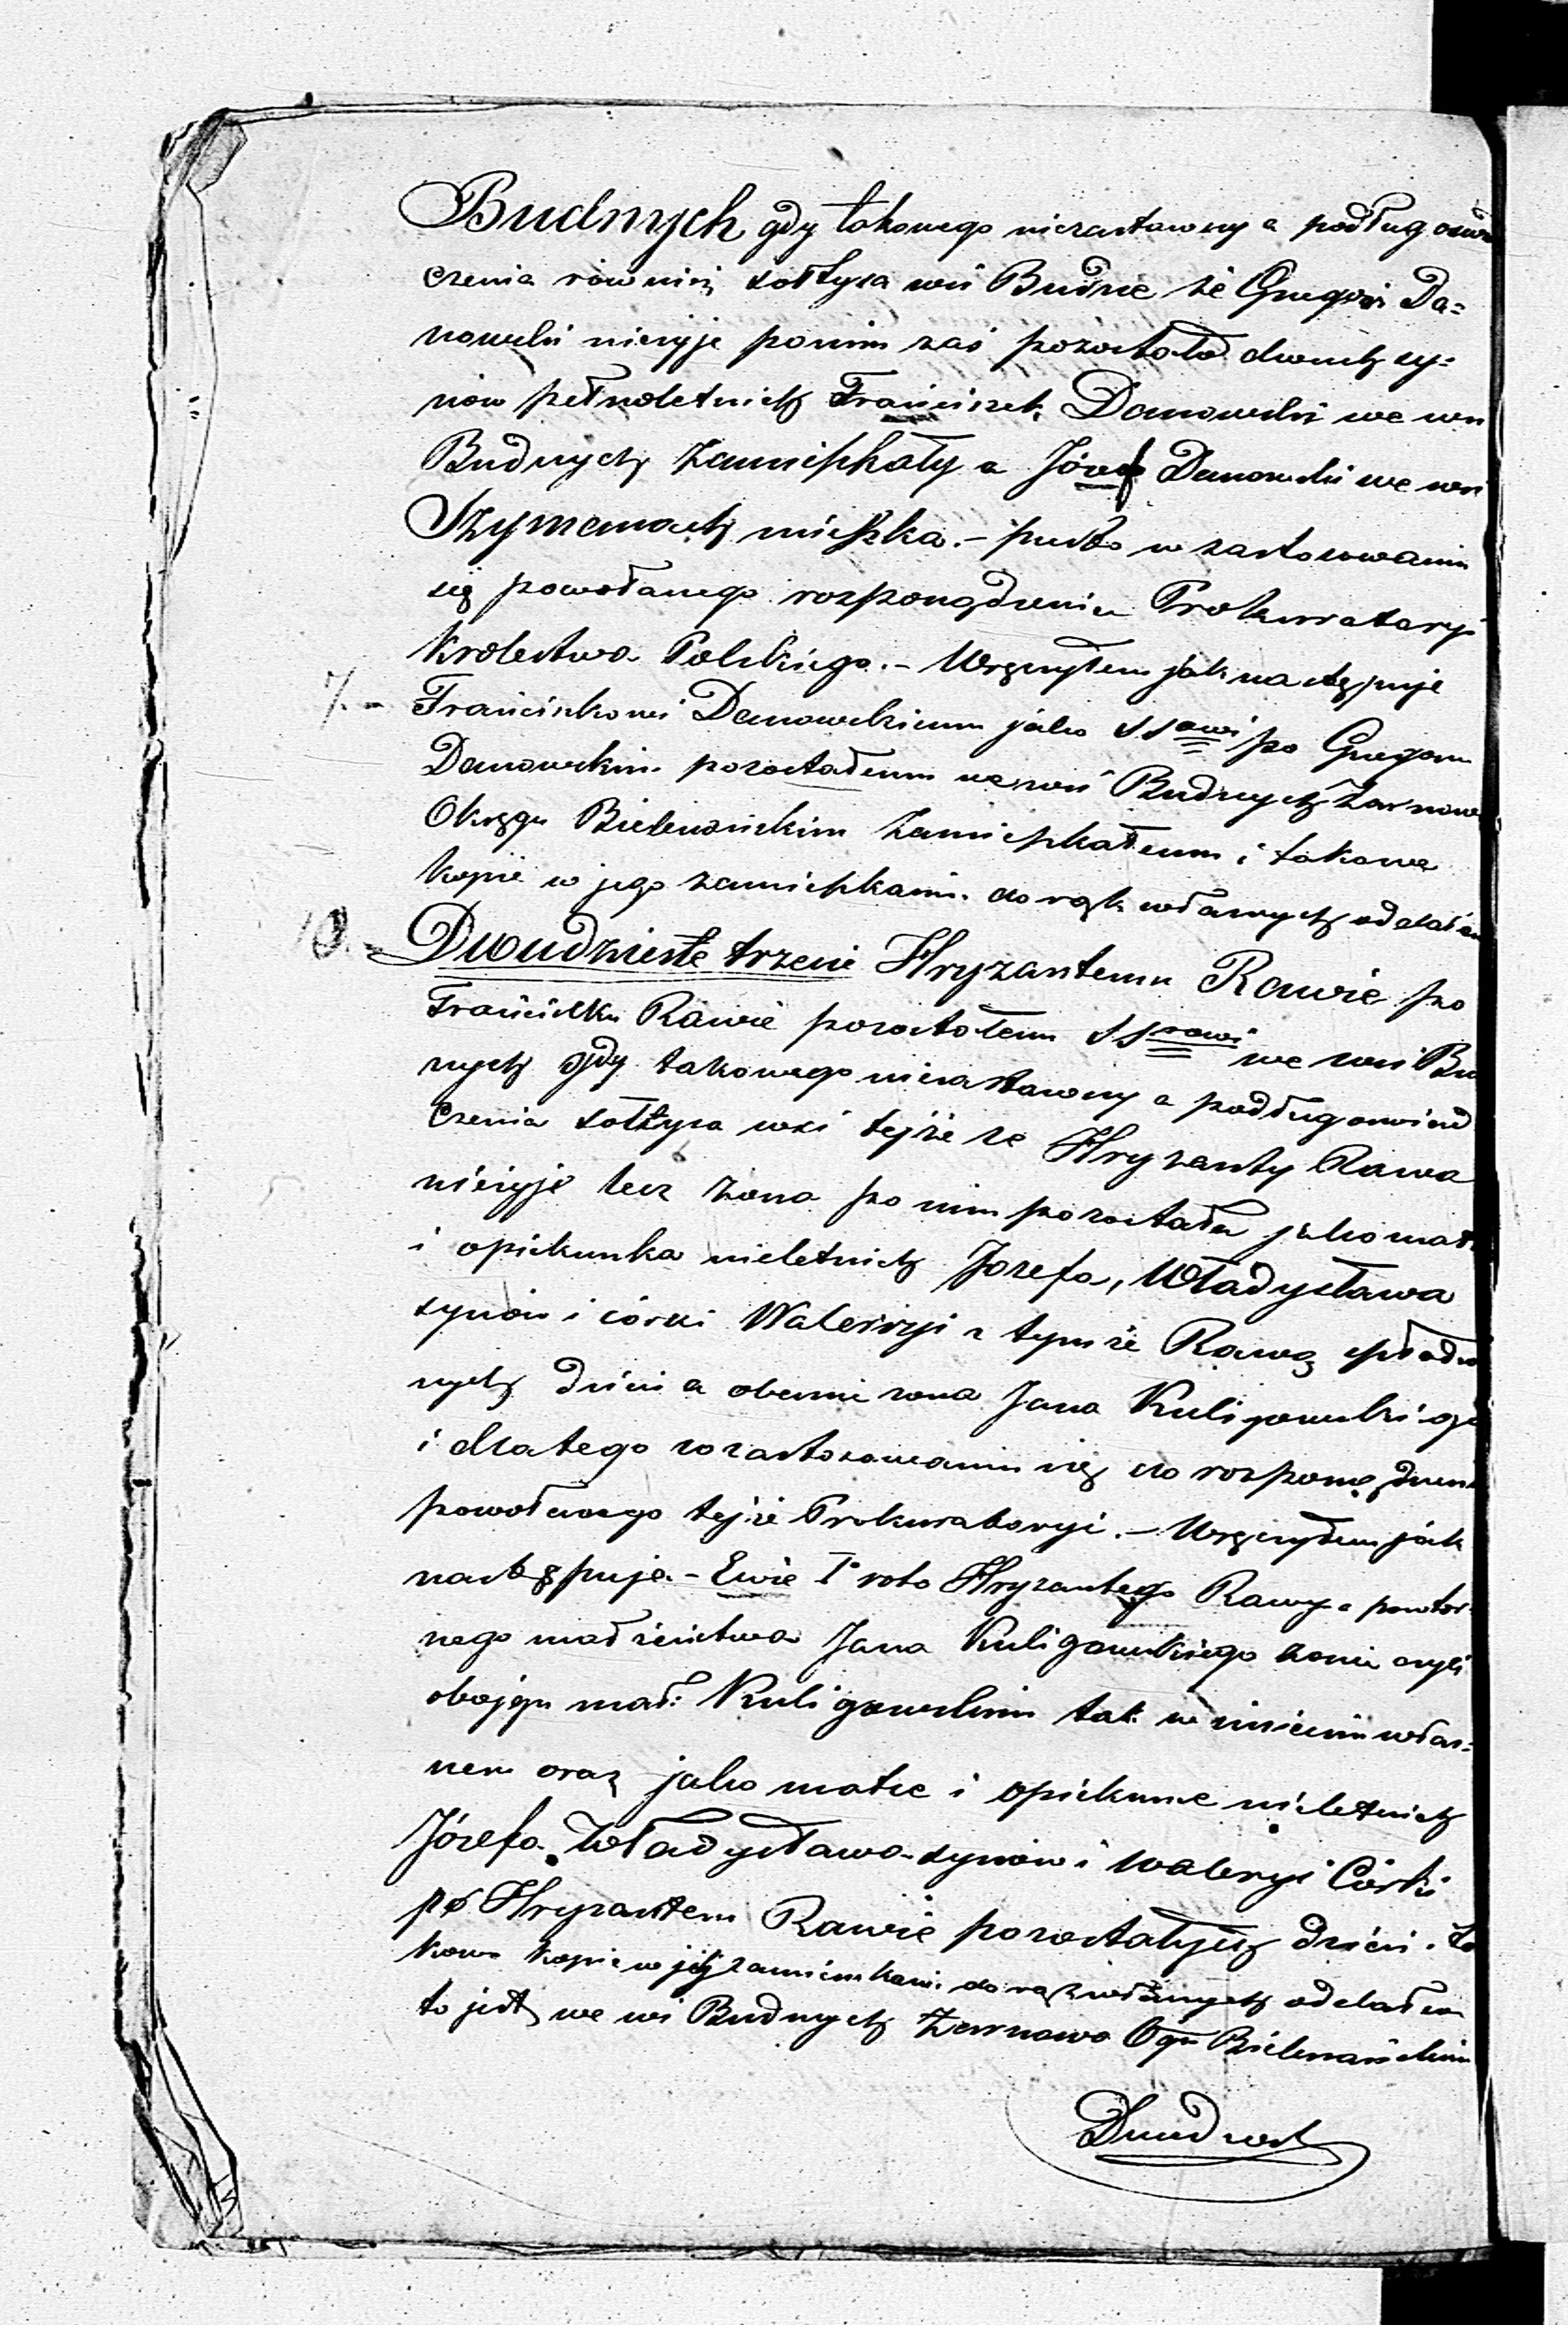 Budnych gdy takowego niezastawszy a podług oswia
czenia również sołtysa wsi Budne że Grzegorz Da=
nowski nieżyje ponim zaś pozostało dwóch sy=
nów pełnoletnich Franciszek Danowski we wsi
Budnych zamieszkały a Józef Danowski we wsi
Szymanach mieszka. – przeto w zastosowaniu
się powołanego rozporządzenia Prokuratoryi
Królestwa Polskiego. – Wręczyłem jak następuje
7. – Franciszkowi Danowskiemu jako SS owi po Grzegorzu
Danowskim pozostałemu we wsi Budnych Żarnowo
Okręgu Biebrzańskim zamieszkałemu i takowe
kopie w jego zamieszkaniu do rąk własnych oddałem
10. – Dwudzieste trzecie Hryzantemu Rawie po
Franciszku Rawie pozostałem SS rowi we wsi Bu
nych gdy takowego niezastawszy a podług oswiad
czenia sołtysa wsi tejże że Hryzanty Rawa
nieżyje lecz żona po nim pozostała jako matk
i opiekunka nieletnich Józefa, Władysława
synów i córki Waleryi z tymże Rawą spłodzo
nych dzieci a obecnie żona Jana Kuligowskiego
i dlatego w zastosowaniu się do rozporządzeni
powołanego tejże Prokuratoryi. – Wręczyłem jak
następuje – Ewie I° voto Hryzantego Rawy a powtór=
nego małżeństwa Jana Kuligowskiego żonie czyli
obojgu mał: Kuligowskim tak w imieniu włas=
nem oraz jako matce i opiekunce nieletnich
Józefa, Władysława synów i Waleryi Córki
po Hryzantem Rawie pozostałych dzieci. ta
kowe kopie w jej zamieszkani. do rąk własnych oddałem
to jest we wsi Budnych Żarnowo Ogu Biebrzańskim